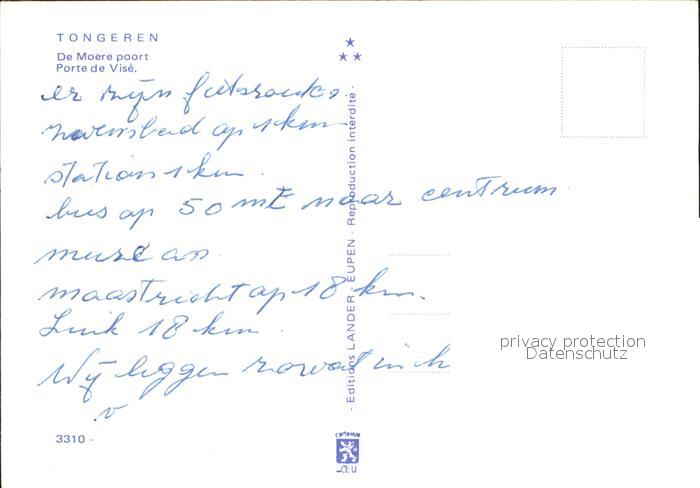 TONGEREN
De Moere poort
Porte de Visé.
er zijn fietsroutes
zwembad op 1 km
station 1 km.
bus op 50 mt naar centrum
museum
maastricht op 18 km.
Luik 18 km.
Wij liggen zowat in h
v
- Editions LANDER - EUPEN - Reproduction interdite -
privacy protection
Datenschutz
3310 -